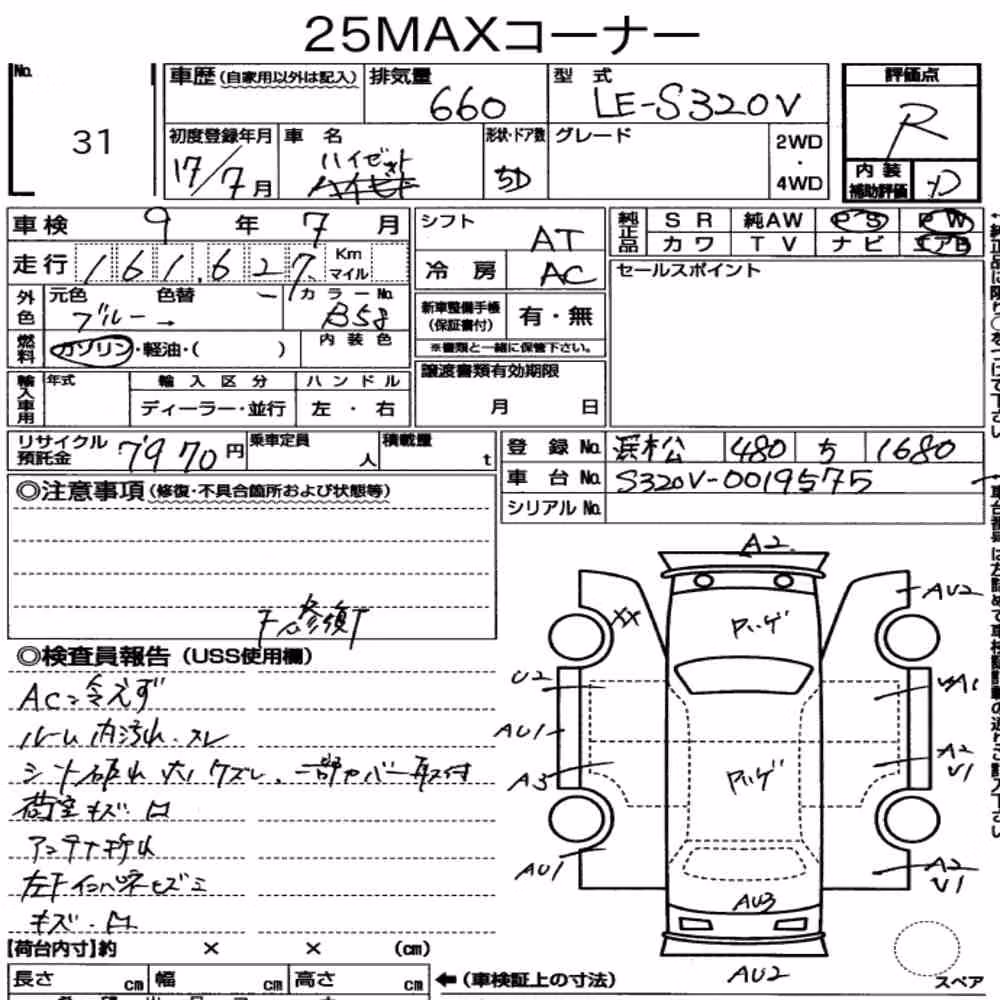 25MAXコーナー
No. 31
車歴 (自家用以外は記入)
排気量 660
型式 LE-S320V
評価点 R
初度登録年月 17/7月
車名 ハイゼット
形状・ドア数 5D
グレード
2WD・4WD
内装補助評価 D
車検 9年7月
走行 161,627 Km マイル
シフト AT
冷房 AC
純正品 SR 純AW PS PW
カワ TV ナビ エアB
外色 元色 ブルー 色替 カラーNo. B58
新車整備手帳(保証書付) 有・無
※書類と一緒に保管下さい。
セールスポイント
燃料 ガソリン・軽油・( )
内装色
輸入車用 年式 輸入区分 ハンドル
ディーラー・並行 左・右
譲渡書類有効期限
月 日
リサイクル預託金 7970円
乗車定員 人
積載量 t
登録No. 浜松 480 ち 1680
車台No. S320V-0019575
シリアルNo.
◎注意事項(修復・不具合箇所および状態等)
下修復
◎検査員報告 (USS使用欄)
AC=冷えず
ルーム内汚れ.スレ
シート破れ 大1 クズレ.一部カバー取付
荷室キズ.凹
アンテナ折れ
左Fインパネヒズミ
キズ.凹
【荷台内寸】約 × × (cm)
長さ cm 幅 cm 高さ cm
←(車検証上の寸法)
A2
AU2
U2
AU1
A3
AU1
A2
V1
A2
V1
AU3
AU2
スペア